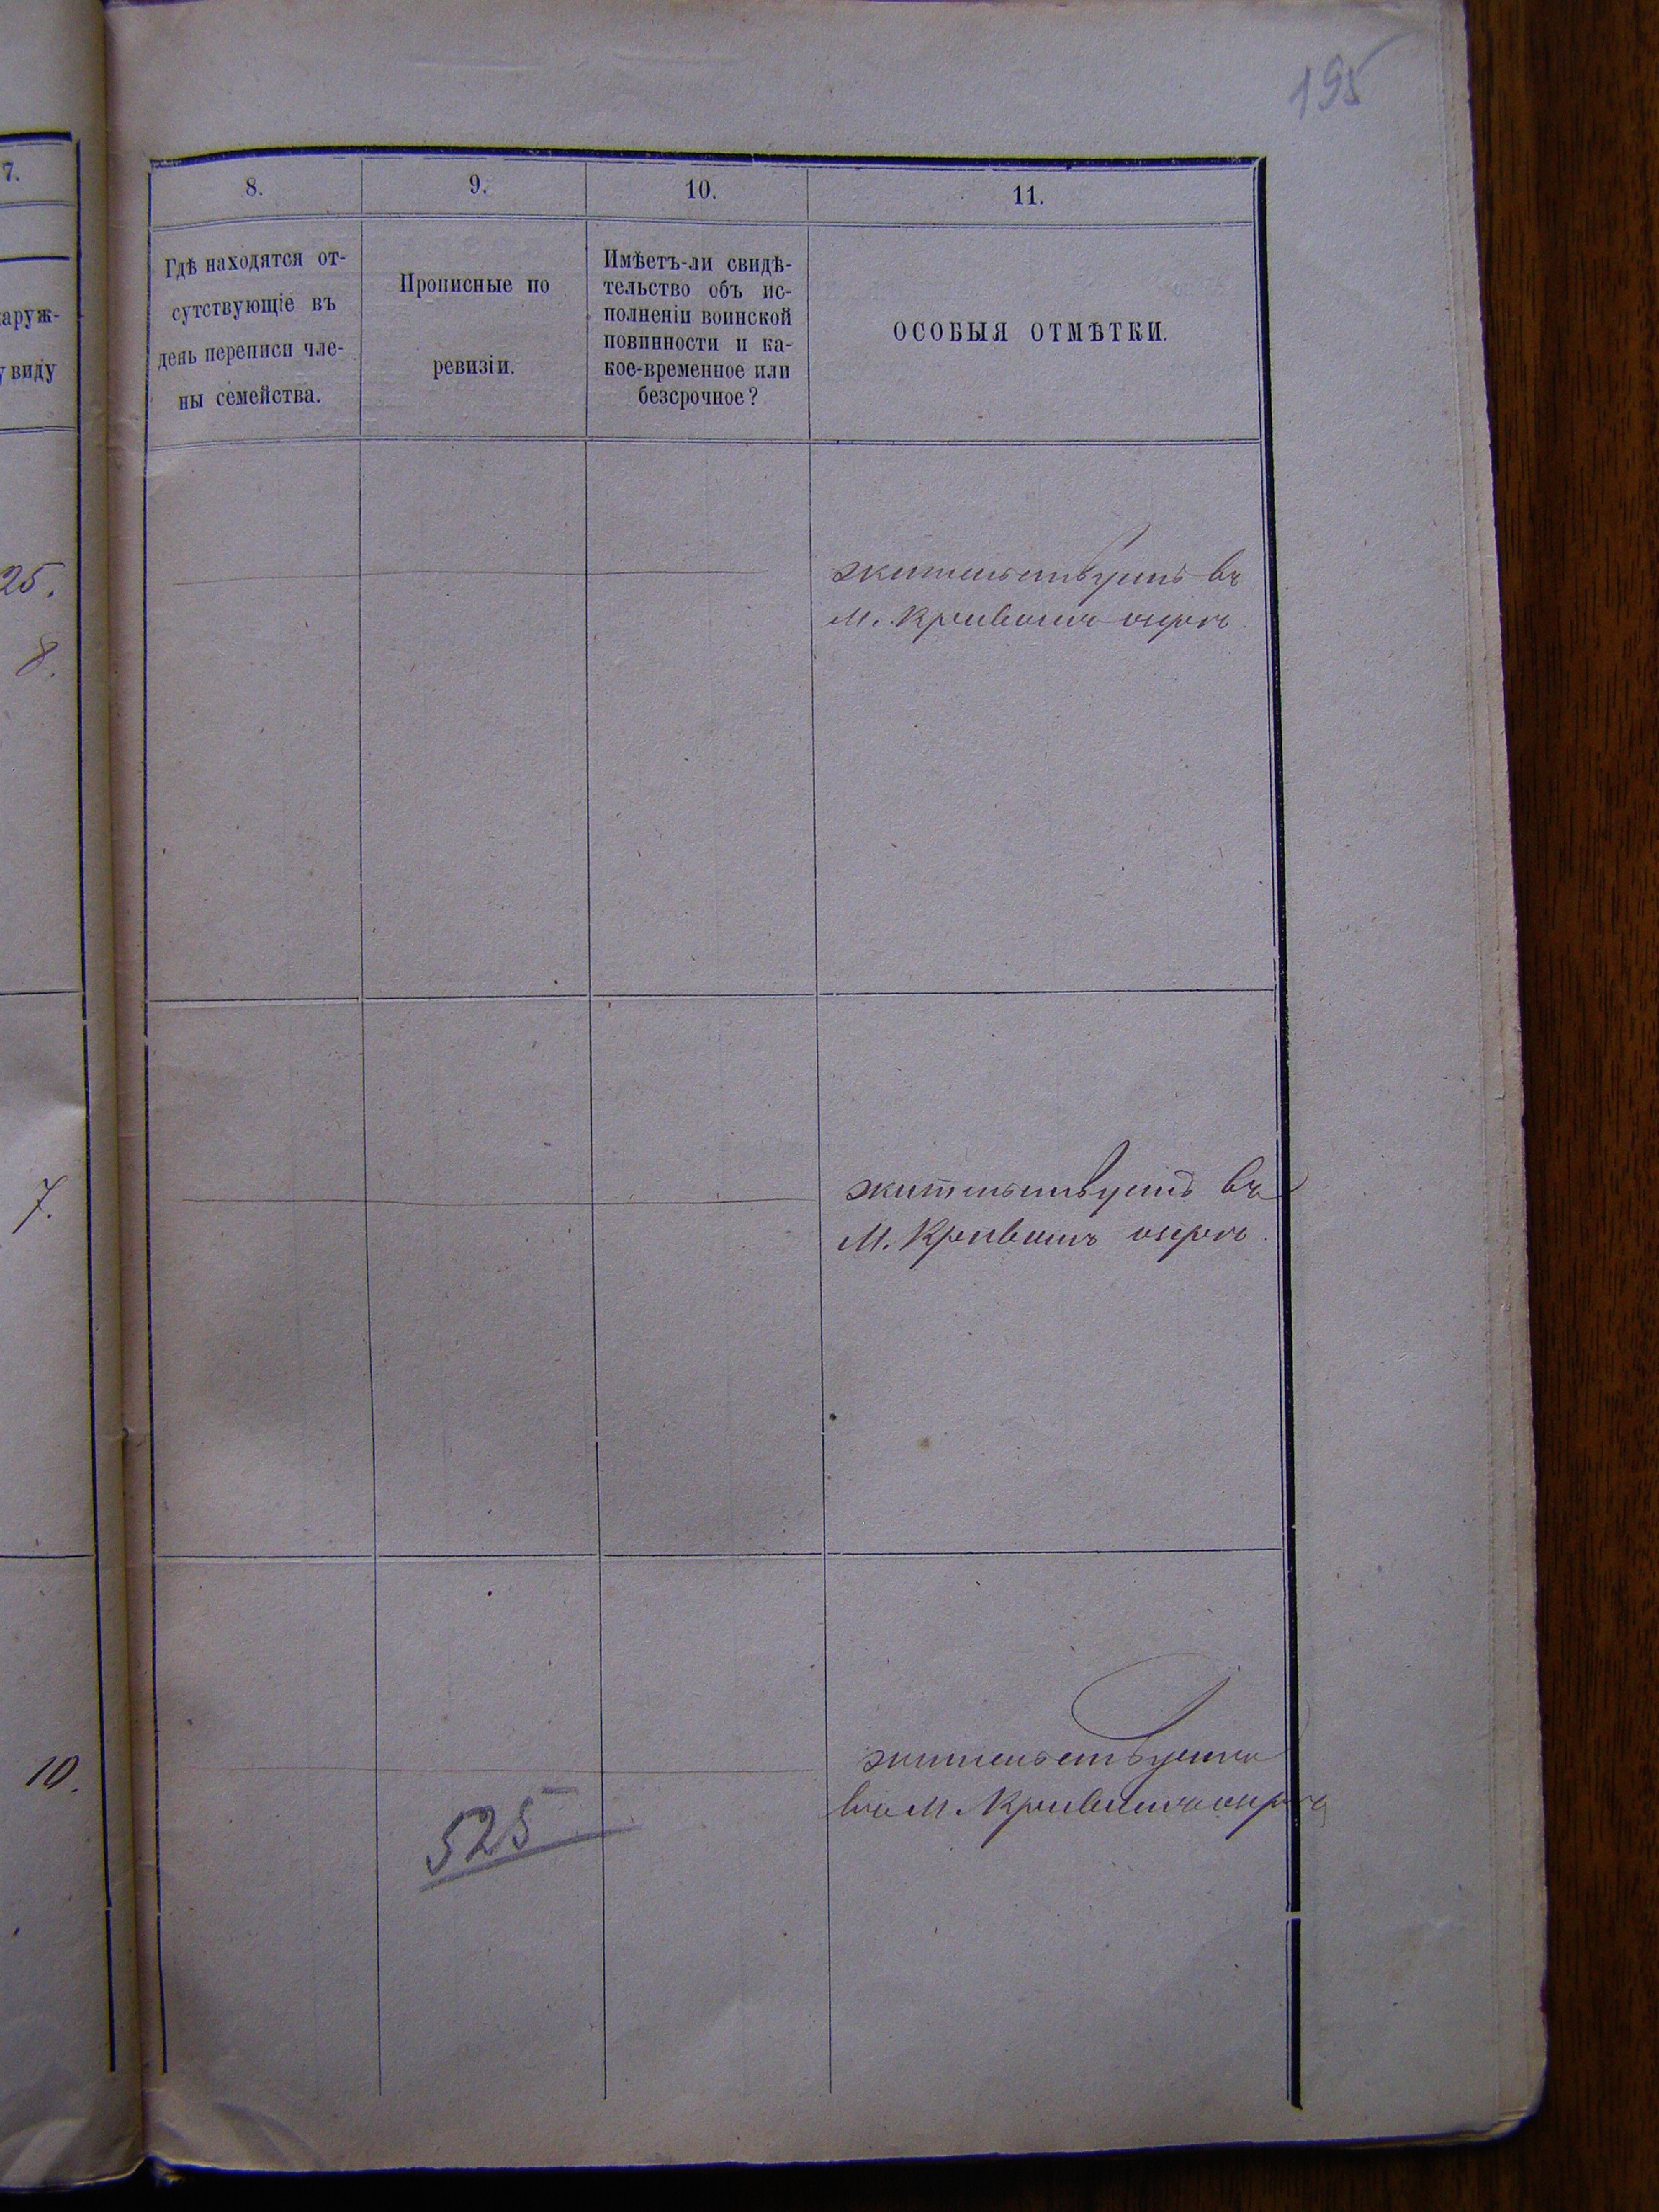 195
7.
8.
9.
10.
11.
аруж-
у виду
Гдѣ находятся от-
сутствующіе въ
день переписи чле-
ны семейства.
Прописные по
ревизіи.
Имѣетъ-ли свидѣ-
тельство объ ис-
полненіи воинской
повинности и ка-
кое-временное или
безсрочное?
ОСОБЫЯ ОТМѢТКИ.
25.
8.
жительствуетъ въ
М. Кривомъ озерѣ.
7.
жительствуетъ въ
М. Кривомъ озерѣ.
10.
525
жительствуетъ
въ М. Кривомъ озерѣ